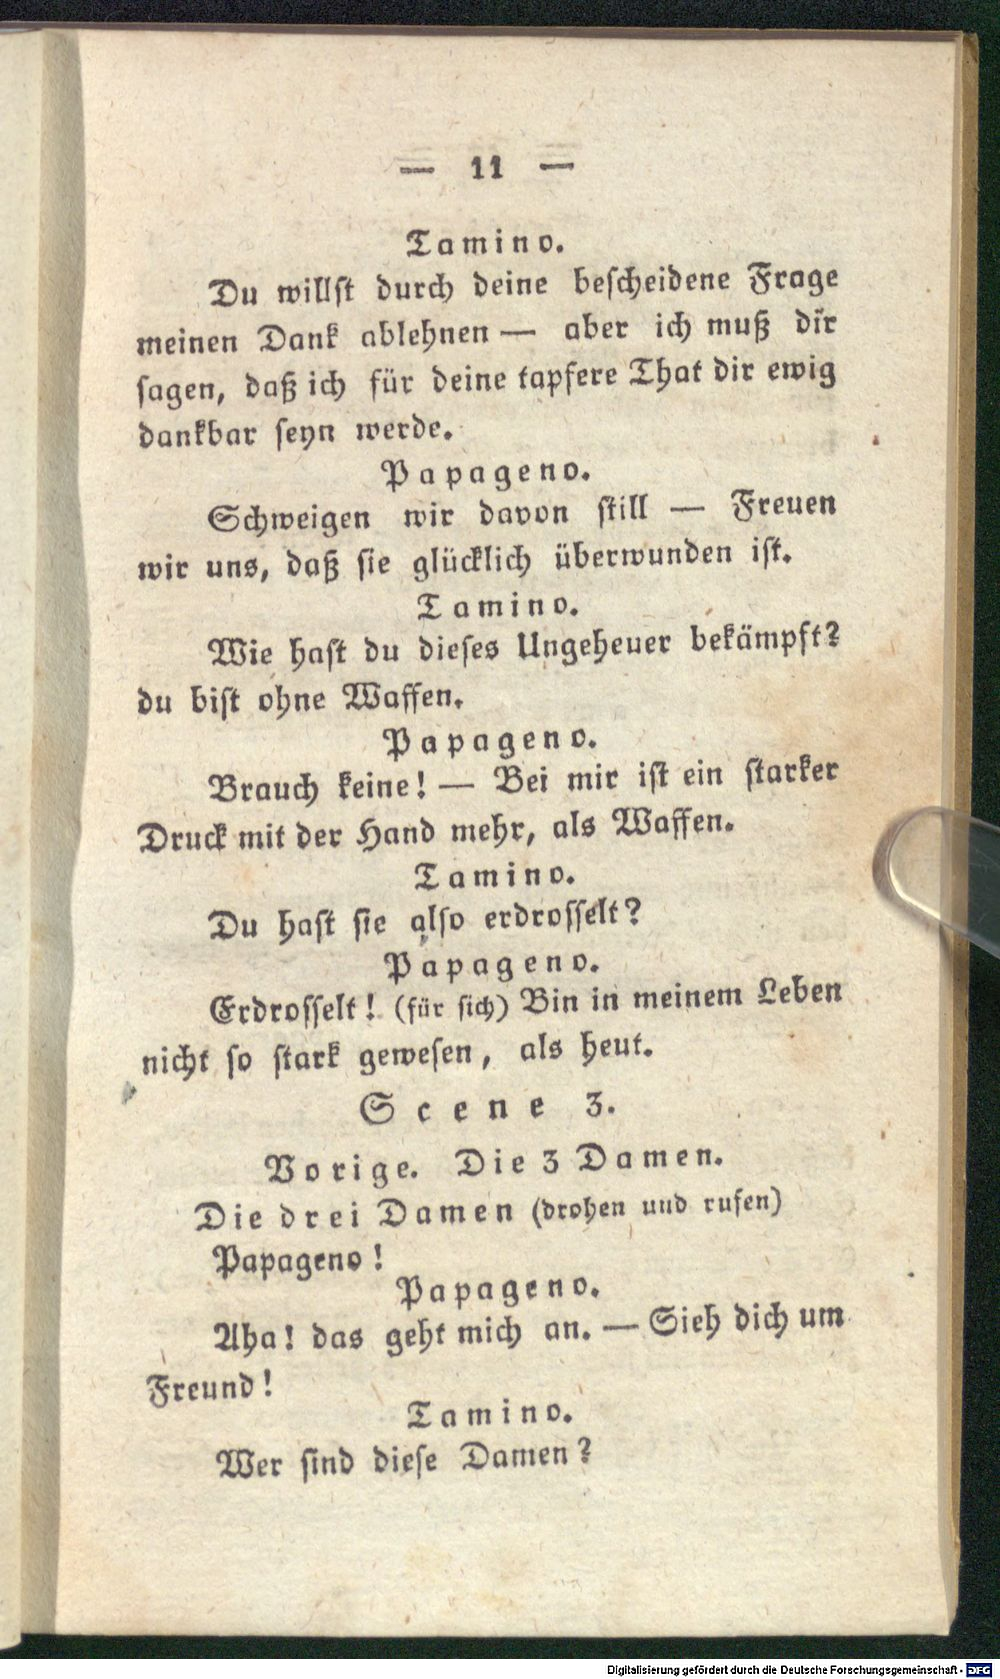 — 11 —
Tamino.
Du willst durch deine bescheidene Frage
meinen Dank ablehnen — aber ich muß dir
sagen, daß ich für deine tapfere That dir ewig
dankbar seyn werde.
Papageno.
Schweigen wir davon still — Freuen
wir uns, daß sie glücklich überwunden ist.
Tamino.
Wie hast du dieses Ungeheuer bekämpft?
du bist ohne Waffen.
Papageno.
Brauch keine! — Bei mir ist ein starker
Druck mit der Hand mehr, als Waffen.
Tamino.
Du hast sie also erdrosselt?
Papageno.
Erdrosselt! (für sich) Bin in meinem Leben
nicht so stark gewesen, als heut.
Scene 3.
Vorige. Die 3 Damen.
Die drei Damen (drohen und rufen)
Papageno!
Papageno.
Aha! das geht mich an. — Sieh dich um
Freund!
Tamino.
Wer sind diese Damen?
Digitalisierung gefördert durch die Deutsche Forschungsgemeinschaft - DFG